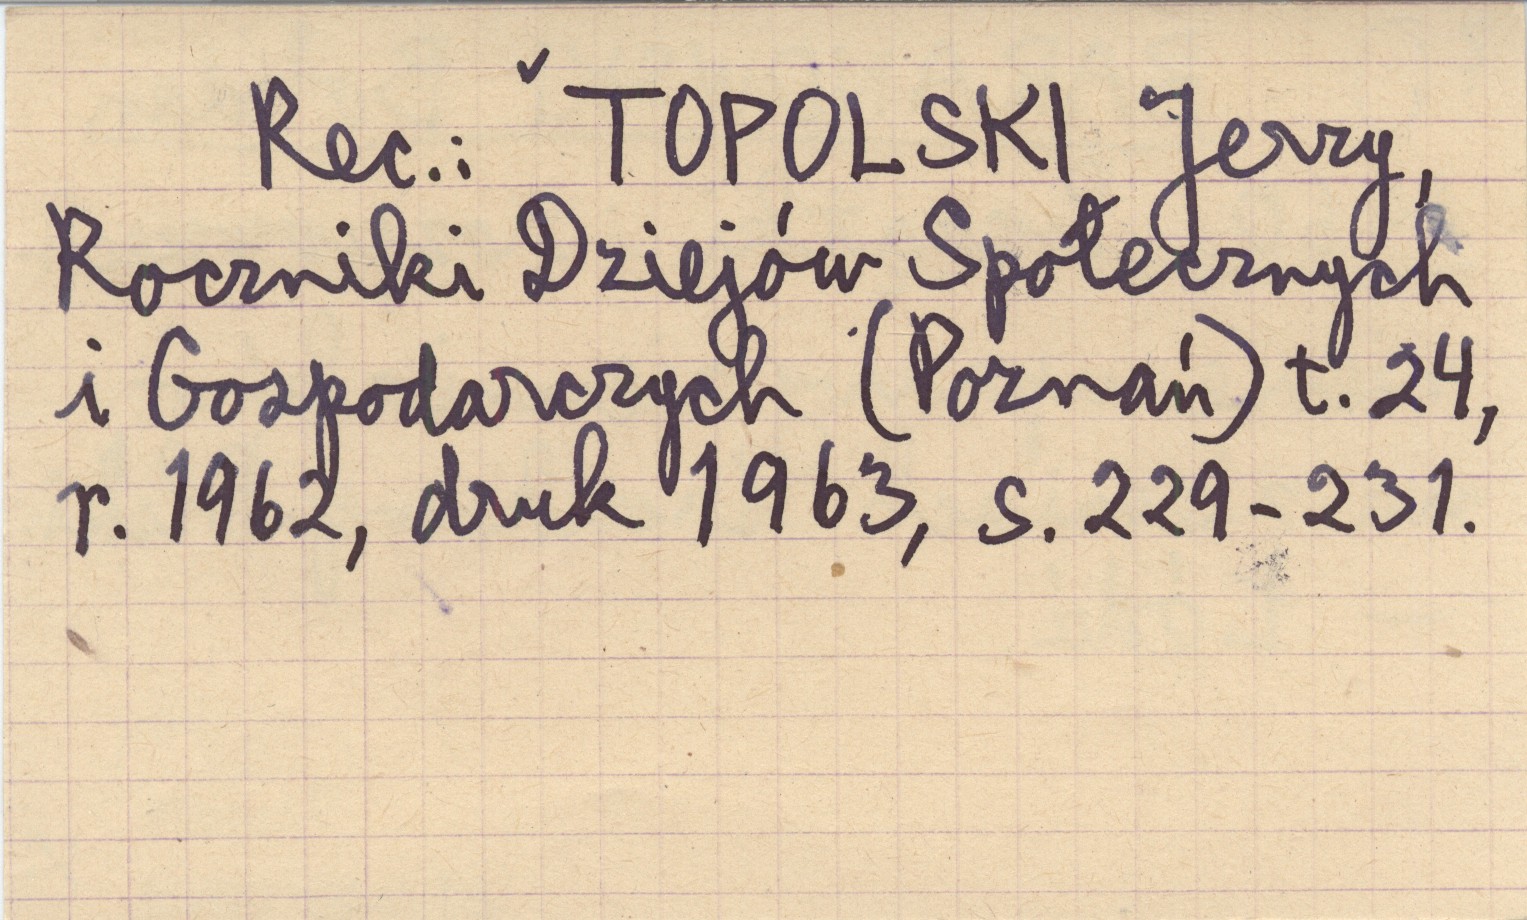 Rec.: ✓TOPOLSKI Jerzy,
Roczniki Dziejów Społecznych
i Gospodarczych (Poznań) t. 24,
r. 1962, druk 1963, s. 229-231.